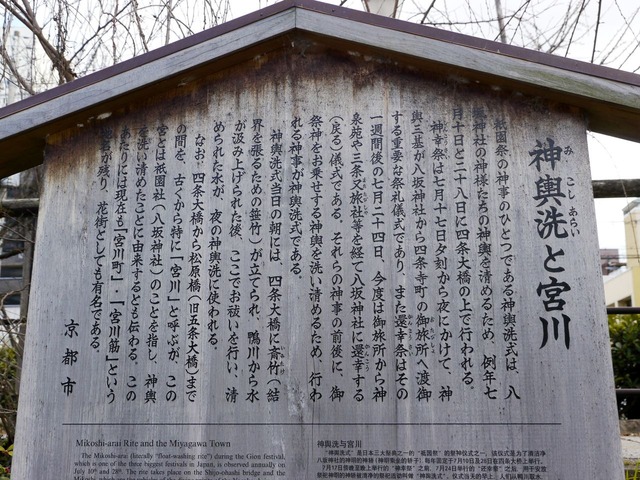 神輿洗と宮川
み こし あらい
祇園祭の神事のひとつである神輿洗式は、八
坂神社の神様たちの神輿を清めるため、例年七
月十日と二十八日に四条大橋の上で行われる。
神幸祭は七月十七日夕刻から夜にかけて、神
輿三基が八坂神社から四条寺町の御旅所へ渡御
する重要な祭礼儀式であり、また還幸祭はその
一週間後の七月二十四日、今度は御旅所から神
泉苑や三条又旅社等を経て八坂神社に還幸する
(戻る)儀式である。それらの神事の前後に、御
祭神をお乗せする神輿を洗い清めるため、行わ
れる神事が神輿洗式である。
神輿洗式当日の朝には、四条大橋に斎竹(結
界を張るための笹竹)が立てられ、鴨川から水
が汲み上げられた後、ここでお祓いを行い、清
められた水が、夜の神輿洗に使われる。
なお、四条大橋から松原橋(旧五条大橋)まで
の間を、古くから特に「宮川」と呼ぶが、この
宮とは祇園社(八坂神社)のことを指し、神輿
を洗い清めたことに由来するとも伝わる。この
あたりには現在も「宮川町」、「宮川筋」という
地名が残り、花街としても有名である。
京都市
Mikoshi-arai Rite and the Miyagawa Town
The Mikoshi-arai (literally "float-washing rite") during the Gion festival,
which is one of the three biggest festivals in Japan, is observed annually on
July 10th and 28th. The rite takes place on the Shijo-ohashi bridge and the
神輿洗与宫川
"神輿洗式"是日本三大祭典之一的"祇园祭"的祭神仪式之一,该仪式是为了清洁净